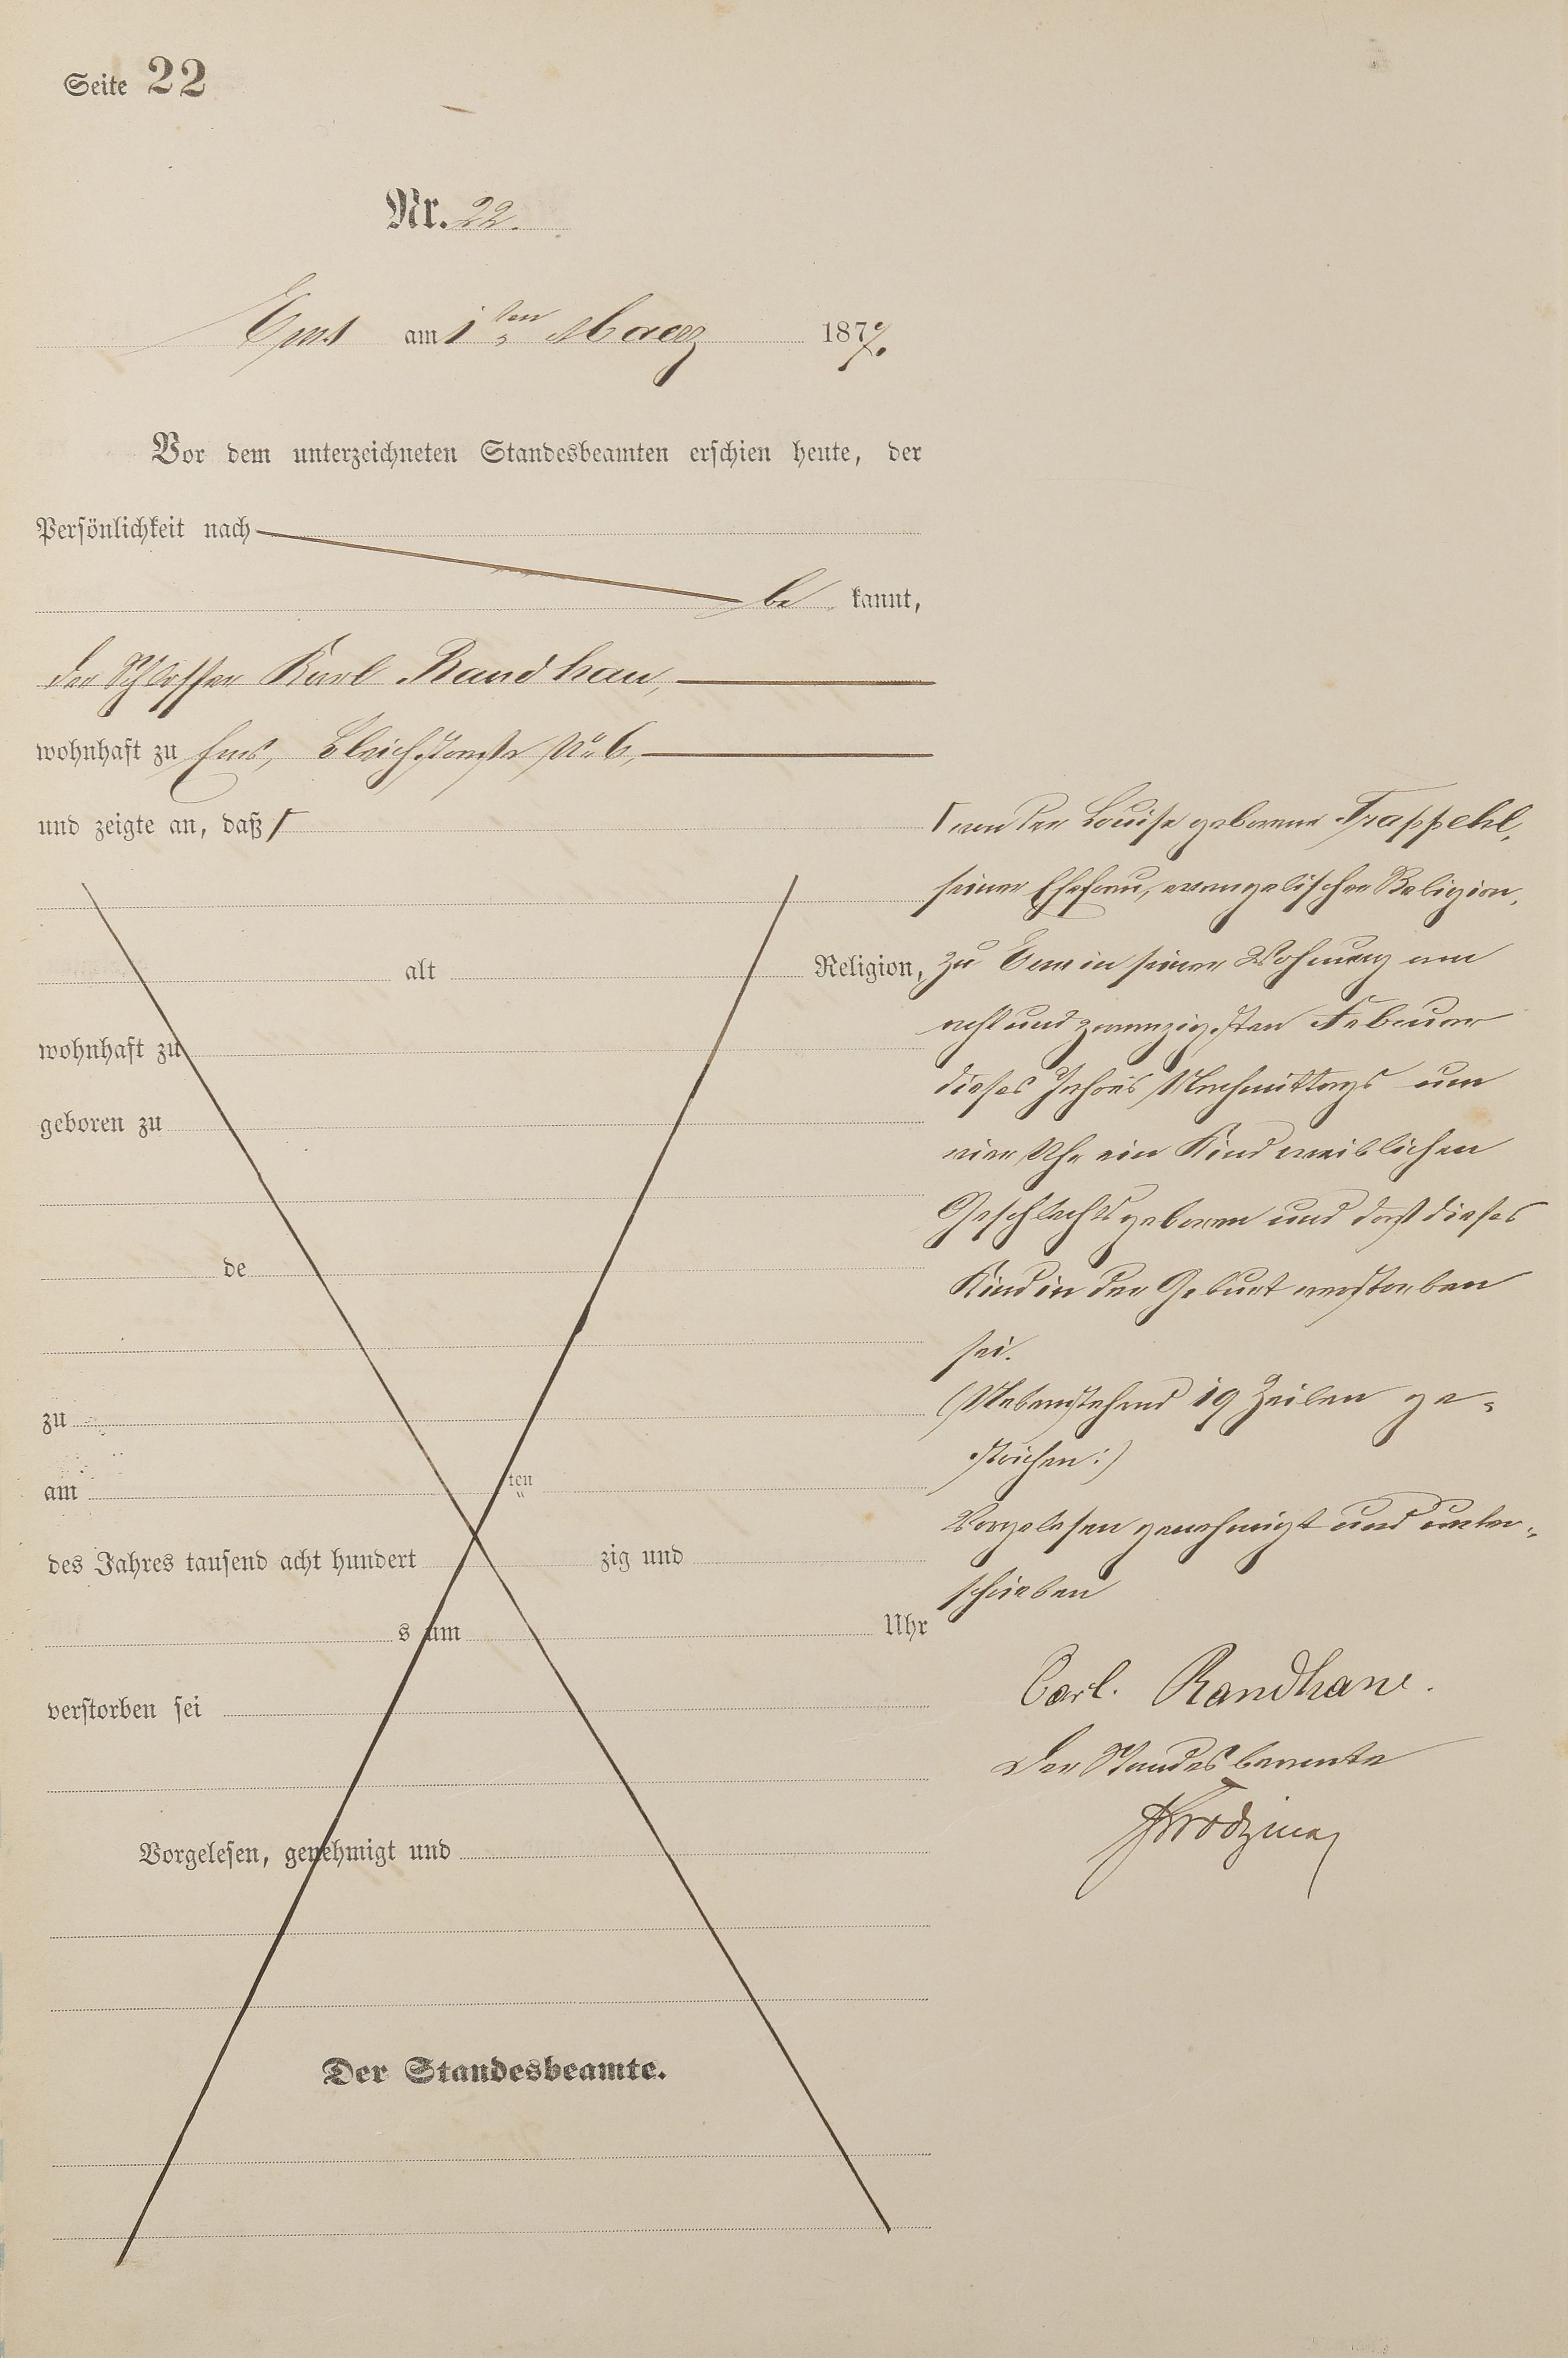 Seite 22
Nr. 22.
Ems am 1ten Maerz 1877.
Vor dem unterzeichneten Standesbeamten erschien heute, der
Persönlichkeit nach
be kannt,
der Schlosser Karl Randhan,
wohnhaft zu Ems, Bleichstraße No 6,
und zeigte an, daß ┌
alt Religion,
wohnhaft zu
geboren zu
de
zu
am ten
des Jahres tausend acht hundert zig und
s um Uhr
verstorben sei
Vorgelesen, genehmigt und
Der Standesbeamte.
┌ von der Louise geborene Trappehl,
seiner Ehefrau, evangelischer Religion,
zu Ems in seiner Wohnung am
acht und zwanzigsten Februar
dieses Jahres Nachmittags um
vier Uhr ein Kind weiblichen
Geschlechts geboren und daß dieses
Kind in der Geburt verstorben
sei.
(Nebenstehend 19 Zeilen ge-
strichen:)
Vorgelesen genehmigt und unter-
schrieben
Carl. Randhane.
Der Standesbeamte